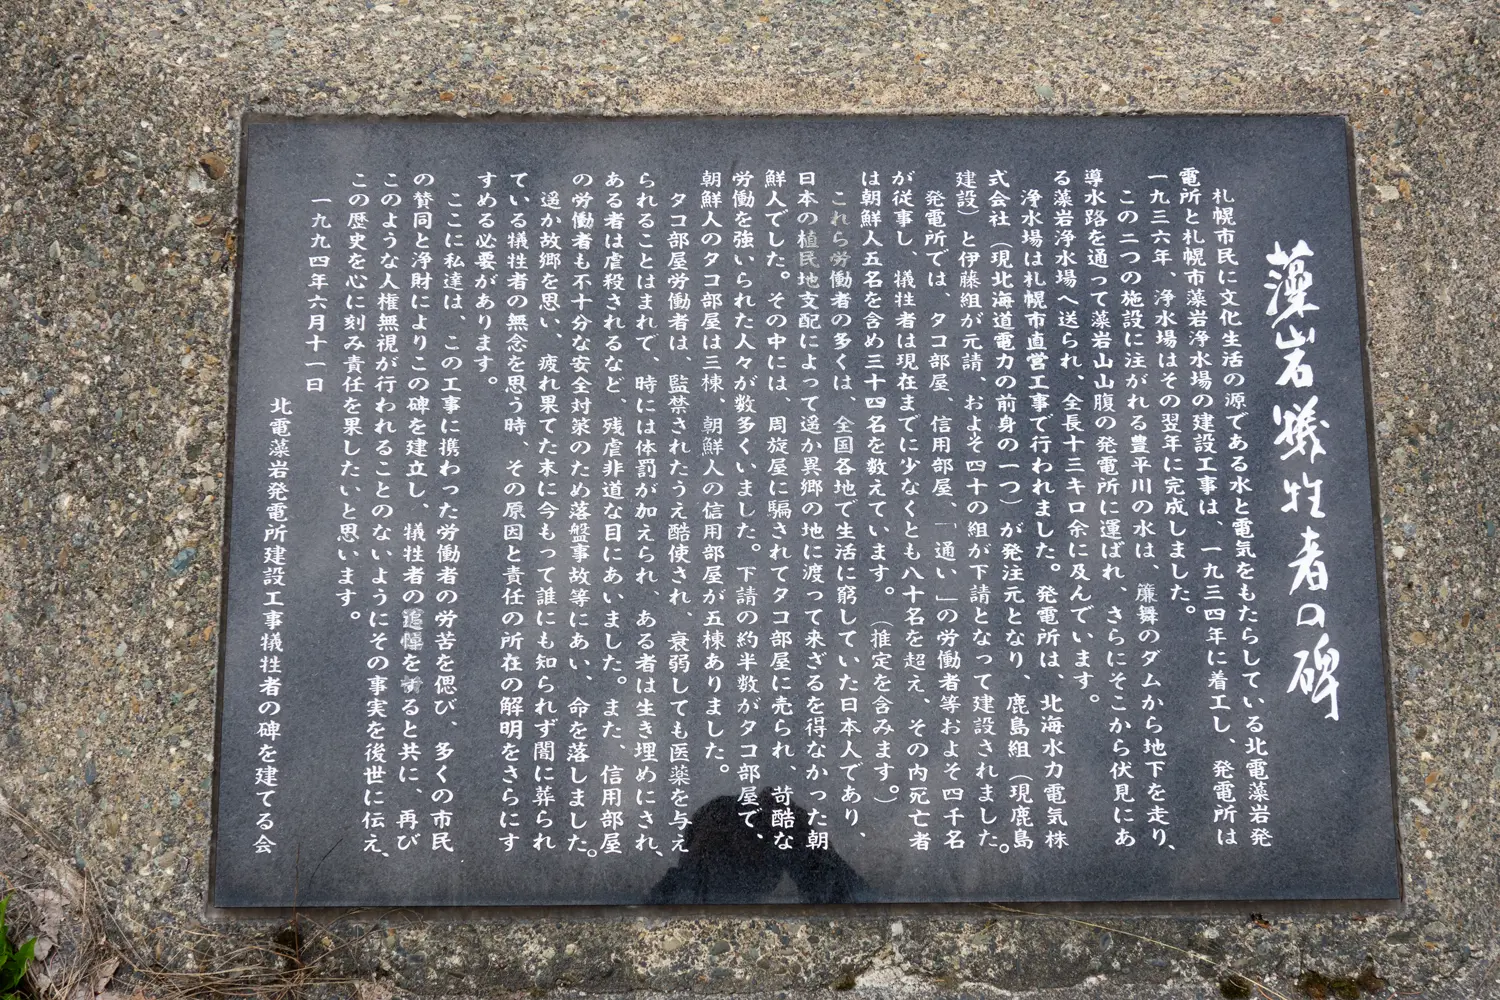 藻岩犠牲者の碑
札幌市民に文化生活の源である水と電気をもたらしている北電藻岩発
電所と札幌市藻岩浄水場の建設工事は、一九三四年に着工し、発電所は
一九三六年、浄水場はその翌年に完成しました。
この二つの施設に注がれる豊平川の水は、簾舞のダムから地下を走り、
導水路を通って藻岩山山腹の発電所に運ばれ、さらにそこから伏見にあ
る藻岩浄水場へ送られ、全長十三キロ余に及んでいます。
浄水場は札幌市直営工事で行われました。発電所は、北海水力電気株
式会社（現北海道電力の前身の一つ）が発注元となり、鹿島組（現鹿島
建設）と伊藤組が元請、およそ四十の組が下請となって建設されました。
発電所では、タコ部屋、信用部屋、「通い」の労働者等およそ四千名
が従事し、犠牲者は現在までに少なくとも八十名を超え、その内死亡者
は朝鮮人五名を含め三十四名を数えています。（推定を含みます。）
これら労働者の多くは、全国各地で生活に窮していた日本人であり、
日本の植民地支配によって遥か異郷の地に渡って来ざるを得なかった朝
鮮人でした。その中には、周旋屋に騙されてタコ部屋に売られ、苛酷な
労働を強いられた人々が数多くいました。下請の約半数がタコ部屋で、
朝鮮人のタコ部屋は三棟、朝鮮人の信用部屋が五棟ありました。
タコ部屋労働者は、監禁されたうえ酷使され、衰弱しても医薬を与え
られることはまれで、時には体罰が加えられ、ある者は生き埋めにされ、
ある者は虐殺されるなど、残虐非道な目にあいました。また、信用部屋
の労働者も不十分な安全対策のため落盤事故等にあい、命を落しました。
遥か故郷を思い、疲れ果てた末に今もって誰にも知られず闇に葬られ
ている犠牲者の無念を思う時、その原因と責任の所在の解明をさらにす
すめる必要があります。
ここに私達は、この工事に携わった労働者の労苦を偲び、多くの市民
の賛同と浄財によりこの碑を建立し、犠牲者の追悼を祈ると共に、再び
このような人権無視が行われることのないようにその事実を後世に伝え、
この歴史を心に刻み責任を果したいと思います。
一九九四年六月十一日
北電藻岩発電所建設工事犠牲者の碑を建てる会